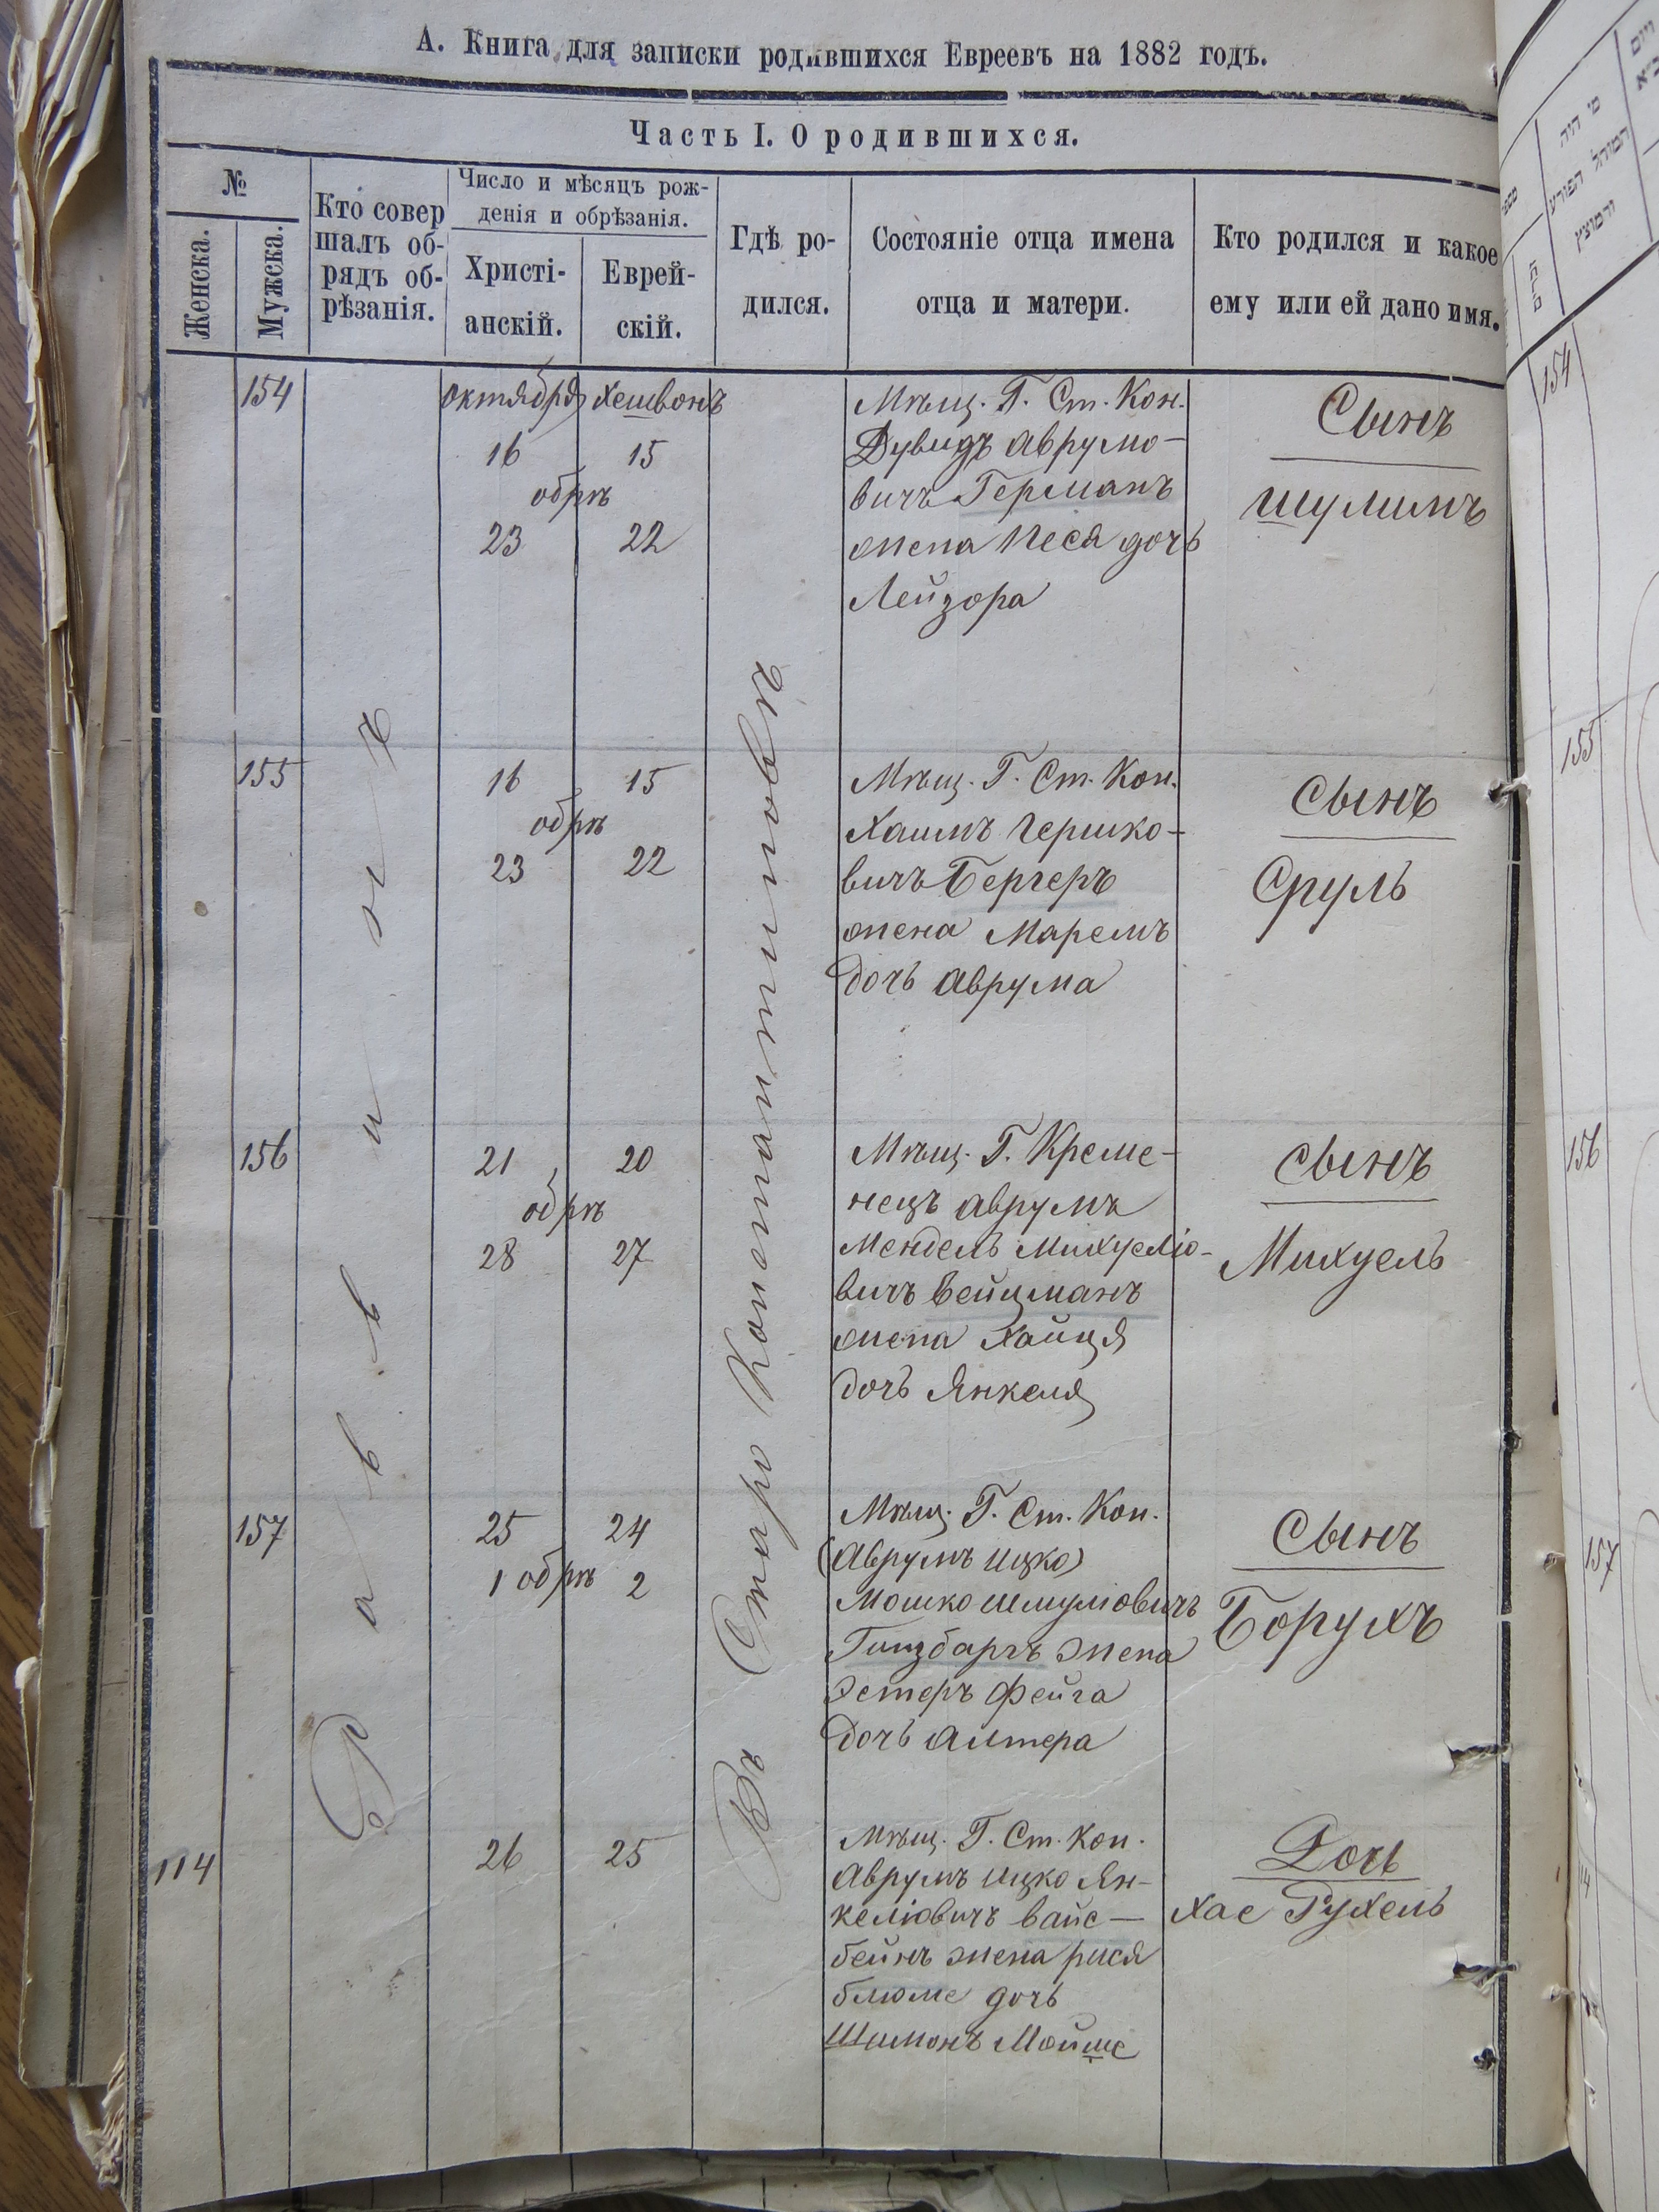 А. Книга для записки родившихся Евреевъ на 1882 годъ.
Часть I. О родившихся.
№
Женска.
Мужска.
Кто совер
шалъ об-
рядъ об-
рѣзанія.
Число и мѣсяцъ рож-
денія и обрѣзанія.
Христі-
анскій.
Еврей-
скій.
Гдѣ ро-
дился.
Состояніе отца имена
отца и матери.
Кто родился и какое
ему или ей дано имя.
Раввинъ
Въ Старо Константиновѣ
154
октября хешвонъ
16 15
обрѣ
23 22
Мѣщ. Г. Ст. Кон.
Дувидъ Аврумо-
вичъ Германъ
жена Песя дочь
Лейзора
Сынъ
Шулимъ
155
16 15
обрѣ
23 22
Мѣщ. Г. Ст. Кон.
Хаимъ Гершко-
вичъ Бергеръ
жена Маремъ
дочь Аврума
Сынъ
Сруль
156
21 20
обрѣ
28 27
Мѣщ. Г. Креме-
нецъ Аврумъ
Мендель Михуеліо-
вичъ Вейцманъ
жена Хайця
дочь Янкеля
Сынъ
Михуель
157
25 24
1 обрѣ 2
Мѣщ. Г. Ст. Кон.
(Аврумъ Ицко)
Мошко Шмуліовичъ
Гинзбаргъ жена
Эстеръ Фейга
дочь Алтера
Сынъ
Борухъ
114
26 25
Мѣщ. Г. Ст. Кон.
Аврумъ Ицко Ян-
келіовичъ Вайс-
бейнъ жена Рися
Блюме дочь
Шимонъ Мойше
Дочь
Хае Рухель
מי היה
המוהל הפורע
והמוצץ
154
155
156
157